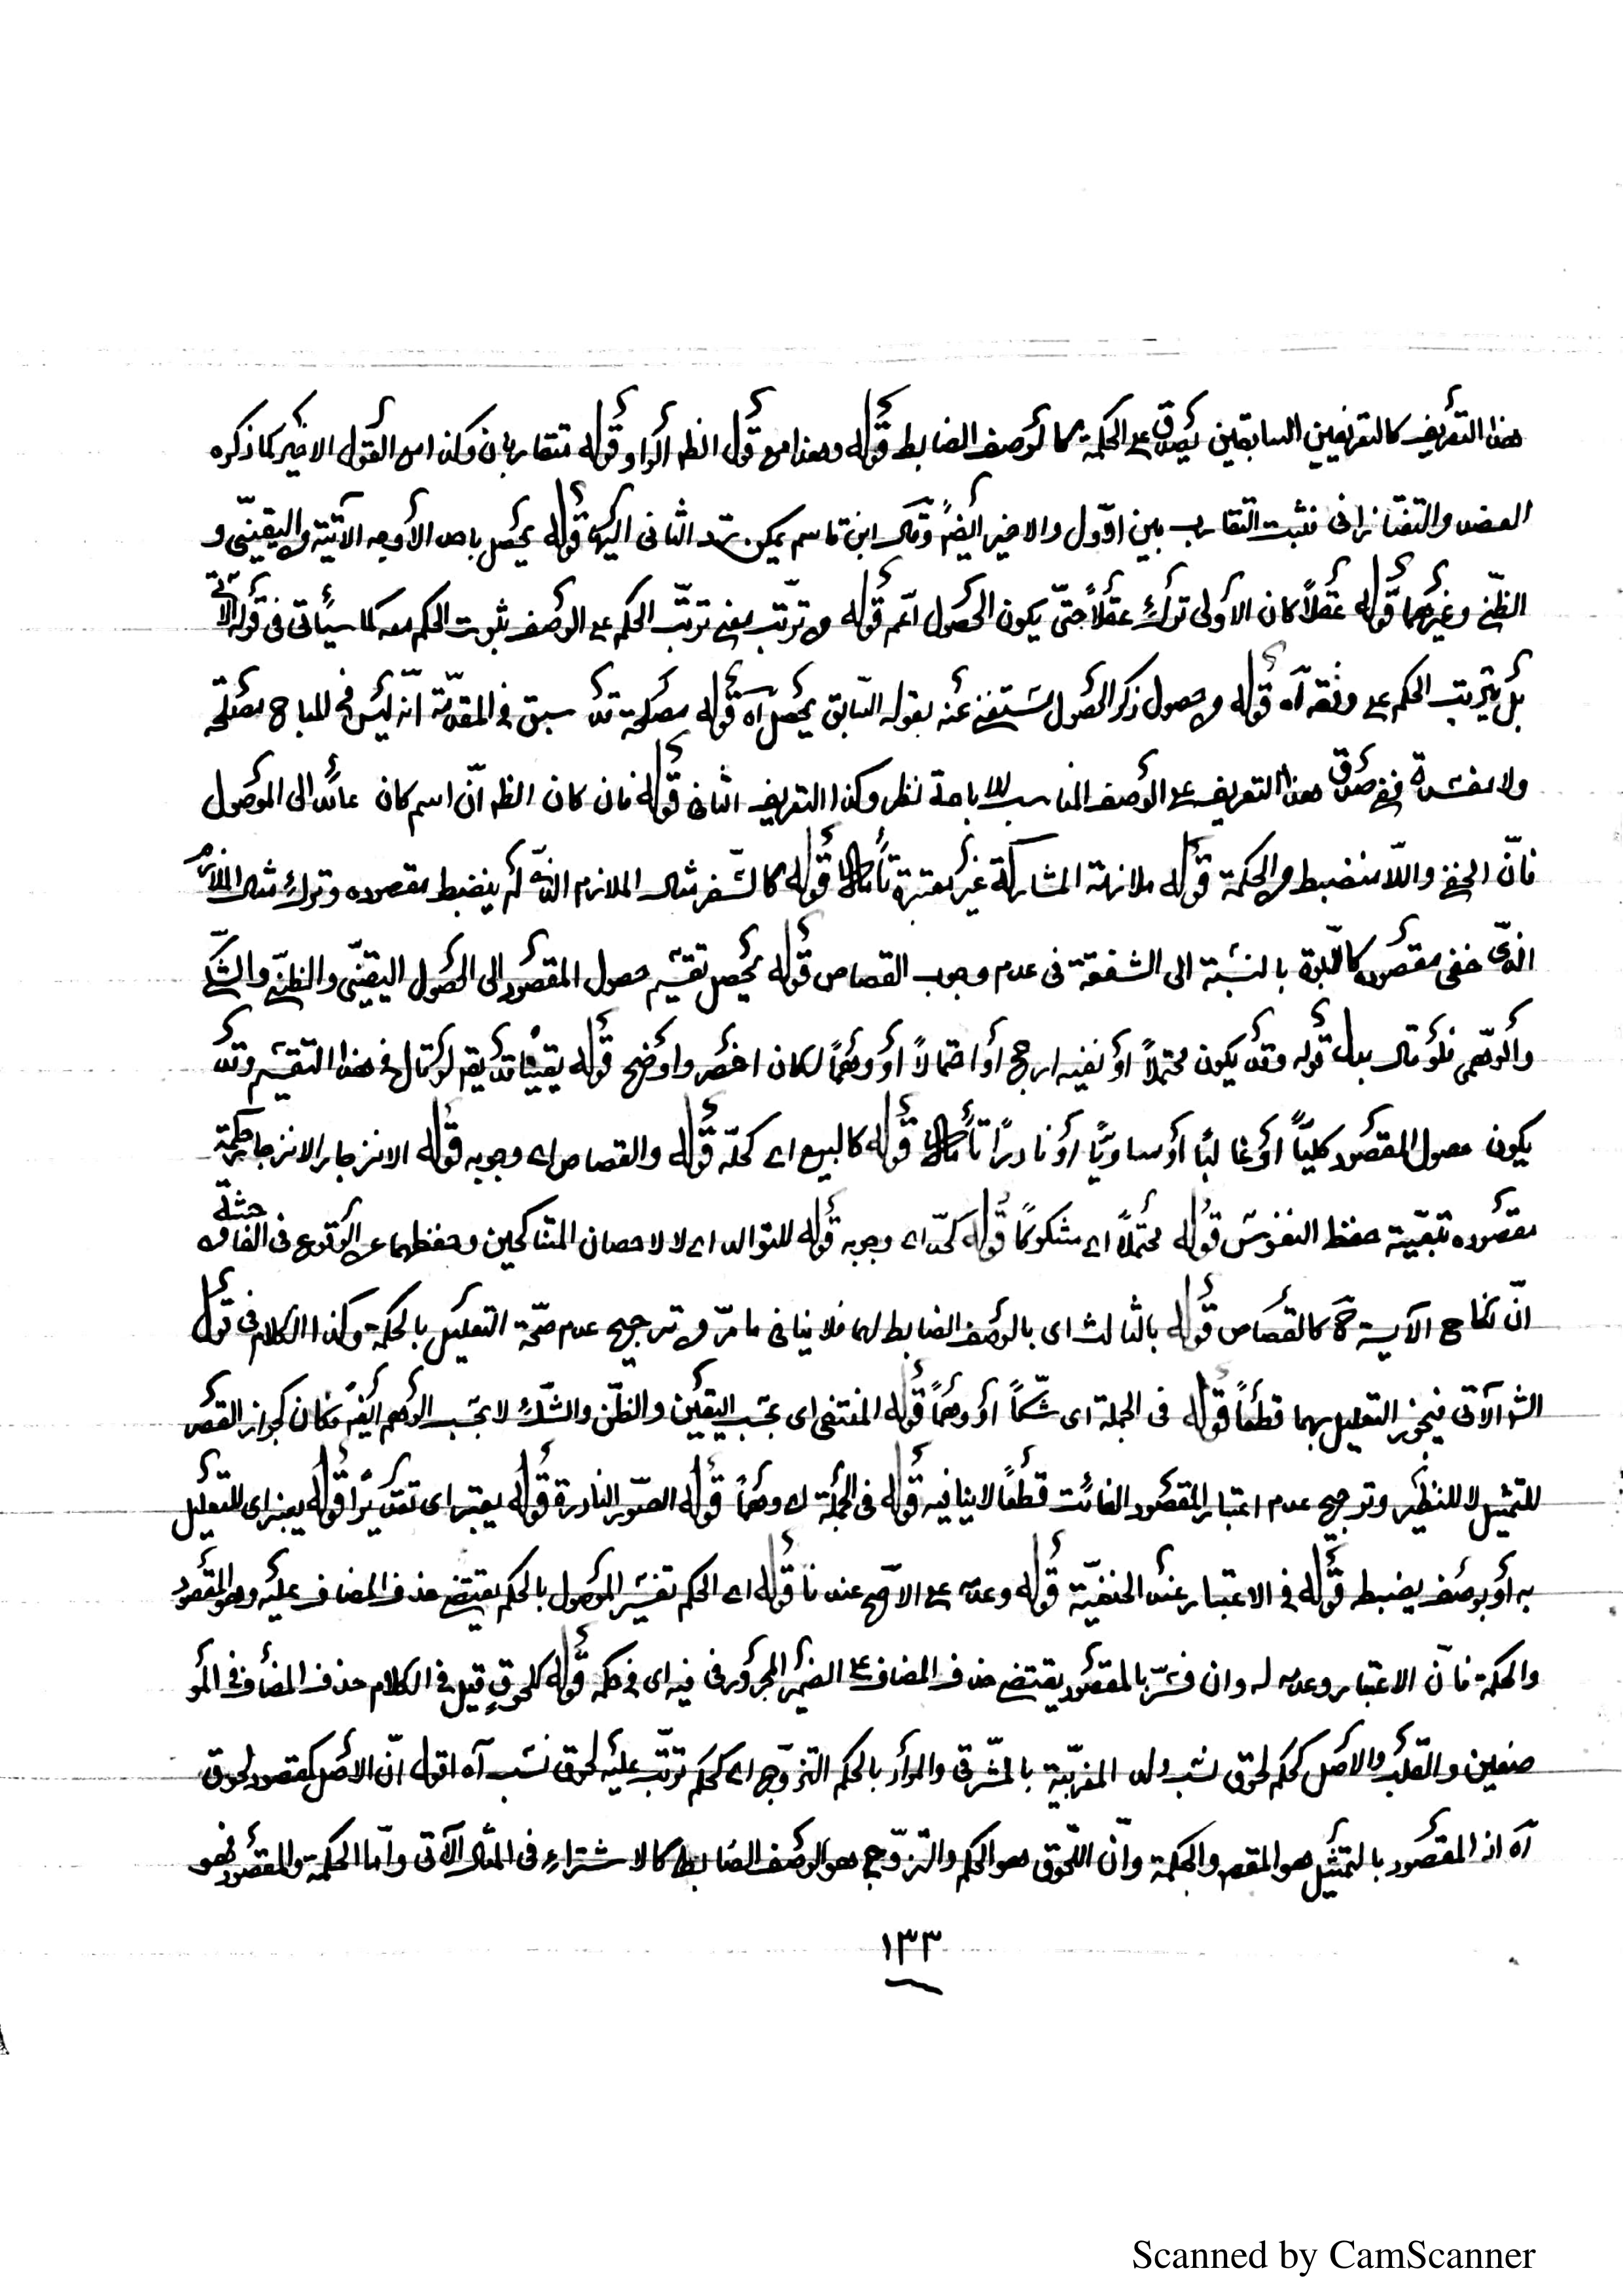 هذا التعريف كالتعريفين السابقين يصدق على الحكمة كما لوصف الضابط قوله وهذا مع قول الظم الواو قوله متقاربان وكذا مع القول الاخير كما ذكره
العضد والتفتازانى فثبت التقارب بين اوّول والاخير ايضً وقال ابن قاسم يمكن ترد الثانى اليها قوله يحصل باحد الأوجه الآتية اليقينىّ و
الظنّى وغيرهما قوله عقلاً كان الأولى ترك عقلاً حتّى يكون الحصول اعّم قوله ترتّب معنى ترتّب الحكم على الوصف ثبوت الحكم معه كما سيأتى فى قوله الآتى
بل يترتب الحكم على وفقه آه قوله حصول ذكر الحصول مستغنى عنه بقوله السّابق يحصل آه قوله مصلحة قد سبق فى المقدّمة انّه ليس فى المباح مصلحة
ولا مفسدة ففى صدق هذا التعريف على الوصف المناسب للاباحة نظر وكذا التعريف الثانى قوله فان كان الظم انّ اسم كان عائد الى الموصول
فانّ الخفى واللّا منضبط الحكمة قوله ملازمة المشاركة غير معتبرة تأمّل قوله كالسّفر مثال الملازم الذى لم ينضبط مقصوده وترك مثال الملازم
الذىّ خفى مقصوده بالنسبة الى الشفقة فى عدم وجوب القصاص قوله يحصل تقسيم حصول المقصود الى الحصول اليقينّى والظنّى والشكّى
والوهمى فلو قال بدل قوله وقد يكون محتملاً او نفيه ارجح أو احتمالاً أو وهماً لكان اخصر واوضح قوله يقيناً قد يقم لو قال فى هذا التقسيم وقد
يكون حصول المقصود كليّاً او غالباً أو مساويّاً أو نادراً تأمّل قوله كالبيع اى كحلّه قوله والقصاص اى وجوبه قوله الانزجار الانزجار حكمة
مقصوده تبقية حفظ النفوس قوله محتملاً اى مشكوكاً قوله كحدّ اى وجوبه قوله للتوالد اى لا لاحصان المتناكحين وحفظهما عن الوقوع فى الفاحشة
انّ نكاح الآيسة كالقصاص قوله بالثالث اى بالوصف الضابط لهما فلا ينافى ما مرّ ترجيح عدم صحّة التعليل بالحكمة وكذا الكلام فى قول
الشر الآتى فيجوز التعليل بهما قطعاً قوله فى الجملة اى شكّاً أو وهماً قوله المنتفى اى بحسب اليقين والظنّ والشّك لا بحسب الوهم ايضً فكان كجواز القصر
للتمثيل لا للنظير وترجيح عدم اعتبار المقصود الفائت قطعاً لا ينافيه قوله فى الجملة ك وهماً قوله الصّور النادرة قوله يعتبر اى تقديراً قوله يعتبر اى للتعليل
به أو بوصف يضبط قوله فى الاعتبار عند الحنفيّة قوله وعدمه على الاصّح عندنا قوله اى الحكم تفسير الموصول بالحكم يقتضى حذف المضاف عليه وهو المقصود
والحكمة فانّ الاعتبار وعدمه له وان فسّر بالمقصود يقتضى حذف المضاف على الضمير المجرور فى فيه اى فى حكمه قوله كلحوق قيل فى الكلام حذف المضاف فى المو
ضعين والقلب والاصل كحكم لحوق نسب ولد المغربيّة بالمشرقى والمراد بالحكم التزوّج اى كحكم ترتّب عليه لحوق نسب آه اقول انّ الاصل كمقصود لحوق
آه اذ المقصود بالتمثيل هو المقصد والحكمة وانّ اللّحوق هو الحكم والتزوّج هو الوصف الضابط كالاشتراء فى المثال الآتى وامّا الحكمة والمقصود فهو
١٣٣
Scanned by CamScanner